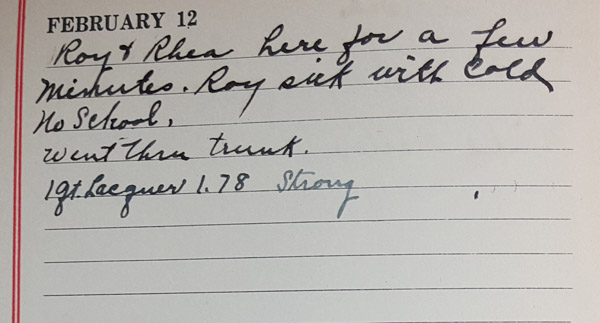 FEBRUARY 12
Roy & Rhea here for a few
minutes. Roy sick with Cold
No School.
Went thru trunk.
1 qt. Lacquer 1.78 Strong